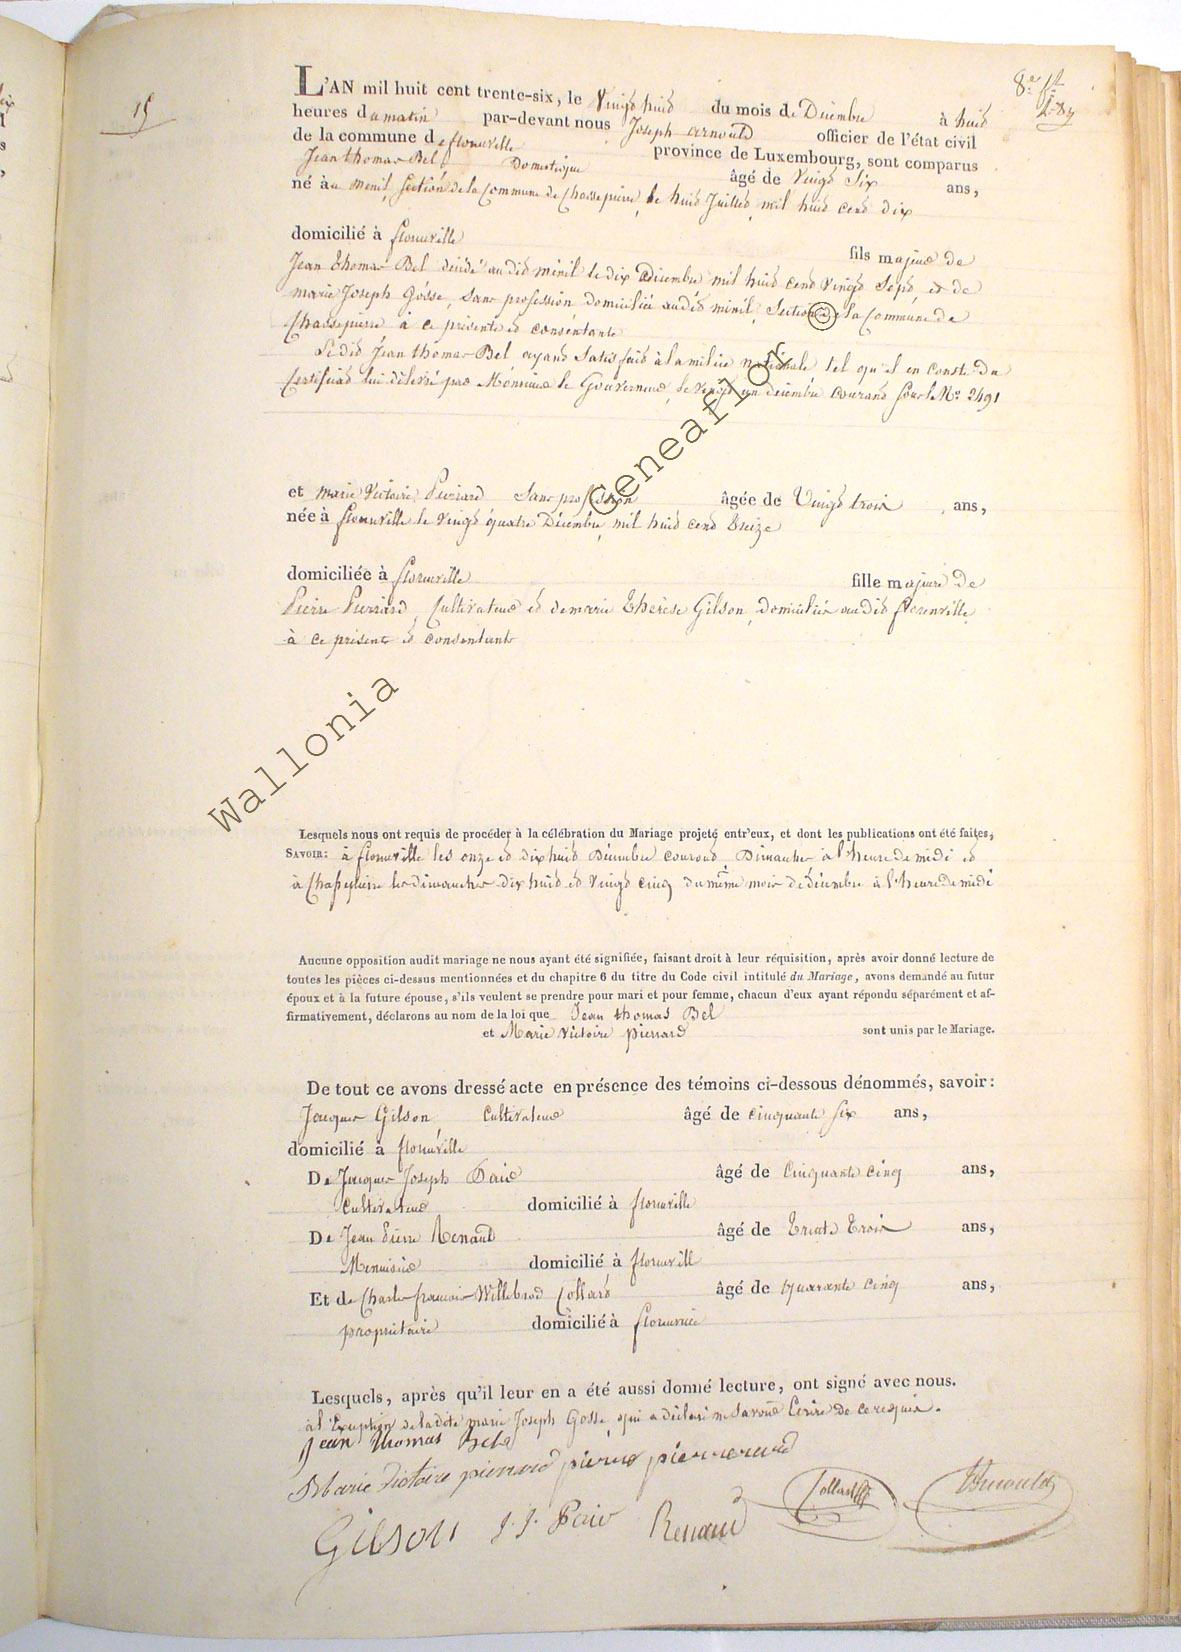 15
8e ft
L'AN mil huit cent trente-six, le Vingt huit du mois de Décembre à huit
heures du matin par-devant nous Joseph Arnould officier de l'état civil
de la commune de florenville province de Luxembourg, sont comparus
Jean thomas Bel, Domestique âgé de Vingt Six ans,
né à au menil, section de la Commune de Chassepierre, le huit Juillet mil huit cent dix
domicilié à florenville fils majeur de
Jean thomas Bel décédé au dit ménil le dix Décembre mil huit cent vingt Sept et de
marie Joseph Gosse, Sans profession domiciliée au dit ménil, Section de la Commune de
Chassepierre à ce présente et consentante
Le dit Jean thomas Bel ayant Satisfait à la milice nationale tel qu'il en conste du
Certificat lui délivré par Monsieur le Gouverneur, le vingt un décembre courant sous le No 2491
et marie Victoire Pierrard Sans profession âgée de Vingt trois ans,
née à florenville le Vingt quatre Décembre mil huit cent treize
domiciliée à florenville fille majeure de
Pierre Pierrard, Cultivateur et de marie Thérèse Gilson, domiciliés au dit florenville
à ce présents et consentants
Lesquels nous ont requis de procéder à la célébration du Mariage projeté entr'eux, et dont les publications ont été faites,
SAVOIR: à florenville les onze et dix huit Décembre courant Dimanches à l'heure de midi et
à Chassepierre les dimanches dix huit et vingt cinq du même mois de décembre à l'heure de midi
Aucune opposition audit mariage ne nous ayant été signifiée, faisant droit à leur réquisition, après avoir donné lecture de
toutes les pièces ci-dessus mentionnées et du chapitre 6 du titre du Code civil intitulé du Mariage, avons demandé au futur
époux et à la future épouse, s'ils veulent se prendre pour mari et pour femme, chacun d'eux ayant répondu séparément et af-
firmativement, déclarons au nom de la loi que Jean thomas Bel
et Marie Victoire pierrard sont unis par le Mariage.
De tout ce avons dressé acte en présence des témoins ci-dessous dénommés, savoir:
Jacques Gilson, Cultivateur âgé de cinquante six ans,
domicilié à florenville
De Jacques Joseph Paire âgé de Cinquante cinq ans,
Cultivateur domicilié à florenville
De Jean Pierre Renauld âgé de Trente Trois ans,
Menuisier domicilié à florenville
Et de Charles françois Willebrod Collard âgé de quarante cinq ans,
propriétaire domicilié à florenville
Lesquels, après qu'il leur en a été aussi donné lecture, ont signé avec nous.
à l'Exception de la dite marie Joseph Gosse qui a déclaré ne savoir Ecrire de ce requise.
Jean thomas Bel
Marie Victoire pierrard pierre pierrerard
Gilson J. J. Paire Renaud Collard Arnould
Wallonia Geneaflor ©